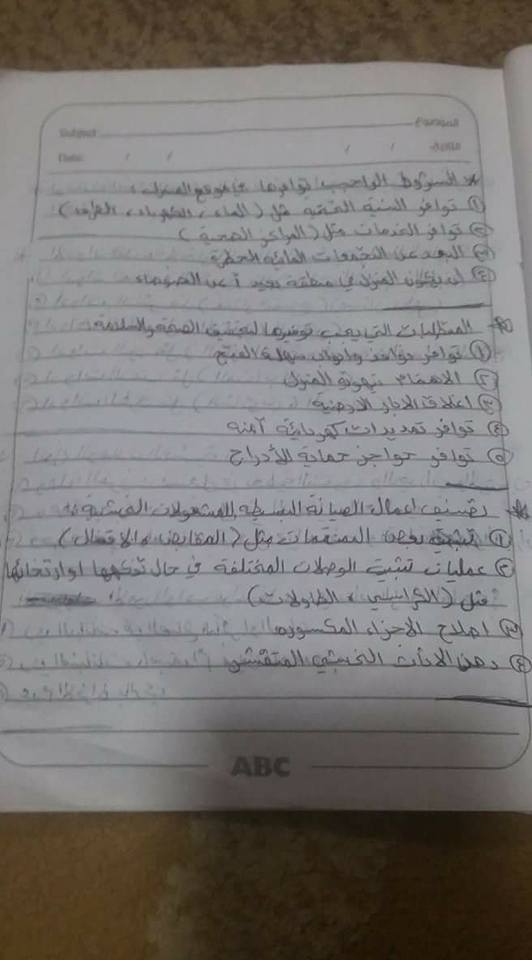 Subject الموضوع
Date: / / / / التاريخ
* الشروط الواجب توافرها في موقع المنزل:
① توافر البنية التحتية مثل (الماء، الكهرباء، الطرق)
② توافر الخدمات مثل (المراكز الصحية)
③ البعد عن التجمعات المائية الخطرة
④ أن يكون المنزل في منطقة بعيدة عن الضوضاء
* المتطلبات التي يجب توفيرها لتحقيق الصحة والسلامة
① توافر نوافذ وابواب سهلة الفتح
② الاهتمام بتهوئة المنزل
③ اغلاق الابار الارضية
④ توافر تمديدات كهربائية آمنة
⑤ توافر حواجز حماية الأدراج
* تصنف اعمال الصيانة البسيطة للمشغولات الخشبية
① بعض المتممات مثل (المقابض والاقفال)
② عمليات تثبيت الوصلات المختلفة في حال تفككها او ارتخائها
مثل (الكراسي، الطاولات)
③ اصلاح الاجزاء المكسورة
④ دهن الاثاث الخشبي المتقشر
ABC